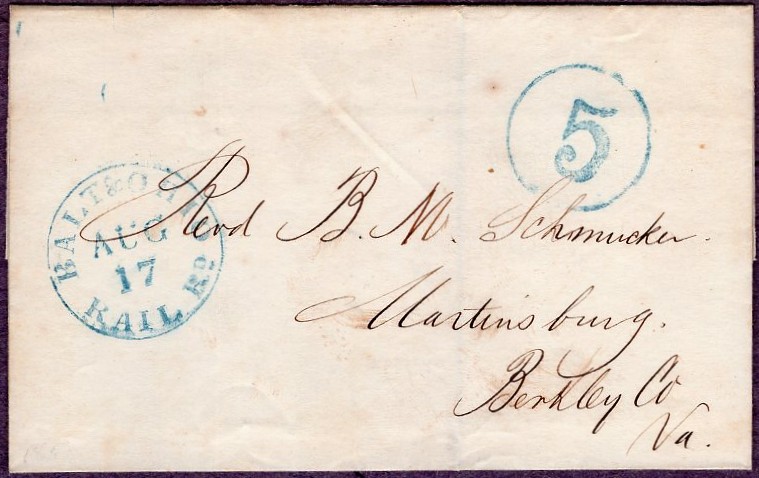 5
BALT & OHIO RAIL Rd
AUG
17
Revd B. M. Schmucker.
Martinsburg.
Berkley Co
Va.